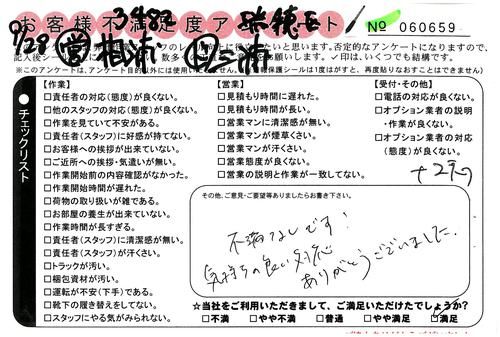 お客様不満足度アンケート
No 060659
9/28 ㊡ 相浦
記入後シー
否定的なアンケートになりますので、
✓印は、いくつでも結構です。
※このアンケートは、アンケート目的以外には使用いたしません。
保護シールは1度はがすと、再度貼りなおすことはできません)
チェックリスト
【作業】
□責任者の対応(態度)が良くない。
□他のスタッフの対応(態度)が良くない。
□作業を見ていて不安がある。
□責任者(スタッフ)に好感が持てない。
□お客様への挨拶が出来ていない。
□ご近所への挨拶・気遣いが無い。
□作業開始前の内容確認がなかった。
□作業開始時間が遅れた。
□荷物の取り扱いが雑である。
□お部屋の養生が出来ていない。
□作業時間が長すぎる。
□責任者(スタッフ)に清潔感が無い。
□責任者(スタッフ)が汗さい。
□トラックが汚い。
□梱包資材が汚い。
□運転が不安(下手)である。
□靴下の履き替えをしてない。
□スタッフにやる気がみられない。
【営業】
□見積もり時間に遅れた。
□見積もり時間が長い。
□営業マンに清潔感が無い。
□営業マンが煙草くさい。
□営業マンが汗くさい。
□営業態度が良くない。
□営業の説明と作業が一致してない。
【受付・その他】
□電話の対応が良くない。
□オプション業者の説明
・作業が良くない。
□オプション業者の対応
(態度)が良くない。
その他、ご意見・ご要望等ありましたらお書き下さい。
不満なしです!
気持ちの良い対応
ありがとうございました。
☆当社をご利用いただきまして、ご満足いただけたでしょうか?
□不満 □やや不満 □普通 □やや満足 ☑満足